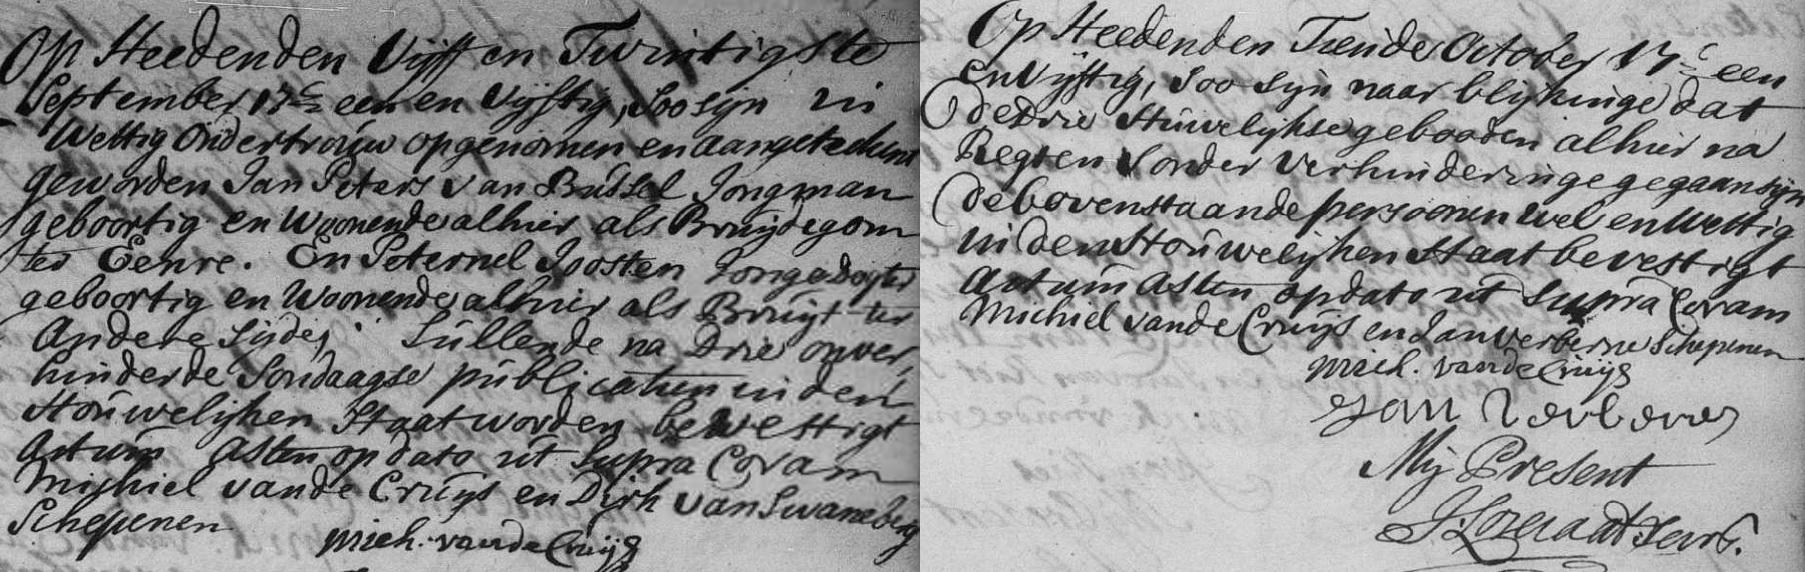 Op Heeden den Vijff en Twintigste
September 17C een en Vijftig, Soo sijn in
Wettig Ondertrouw opgenomen en aangetekent
geworden Jan Peters van Bussel Jongman
geboortig en Woonende alhier als Bruijdegom
ter Eenre. En Peternel Joosten Jongedogter
geboortig en Woonende alhier als Bruijt ter
Andere sijde, Sullende na Drie onver,
hinderde Sondaagse publicatien in den
Houwelijken Staat worden bewettigt
Actum Asten op dato ut Supra Coram
Mighiel vande Cruijs en Dirk van Swaneberg
Schepenen
Mich. vande Cruijs
Op Heeden den Tiende October 17C een
en Vijftig, Soo sijn naar blijkinge dat
de Drie Huwelijkse gebooden alhier na
Regten Sonder Verhinderinge gegaan sijn
de bovenstaande persoonen wel en Wettig
in den Houwelijken Staat bevestigt
Actum Asten op dato ut Supra Coram
Michiel vande Cruijs en Jan Verberne Schepenen
Mich. vande Cruijs
Jan Verberne
Mij Present